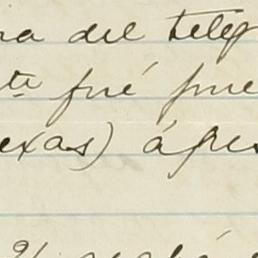 na del telég
ta fué pue
exas) á pes